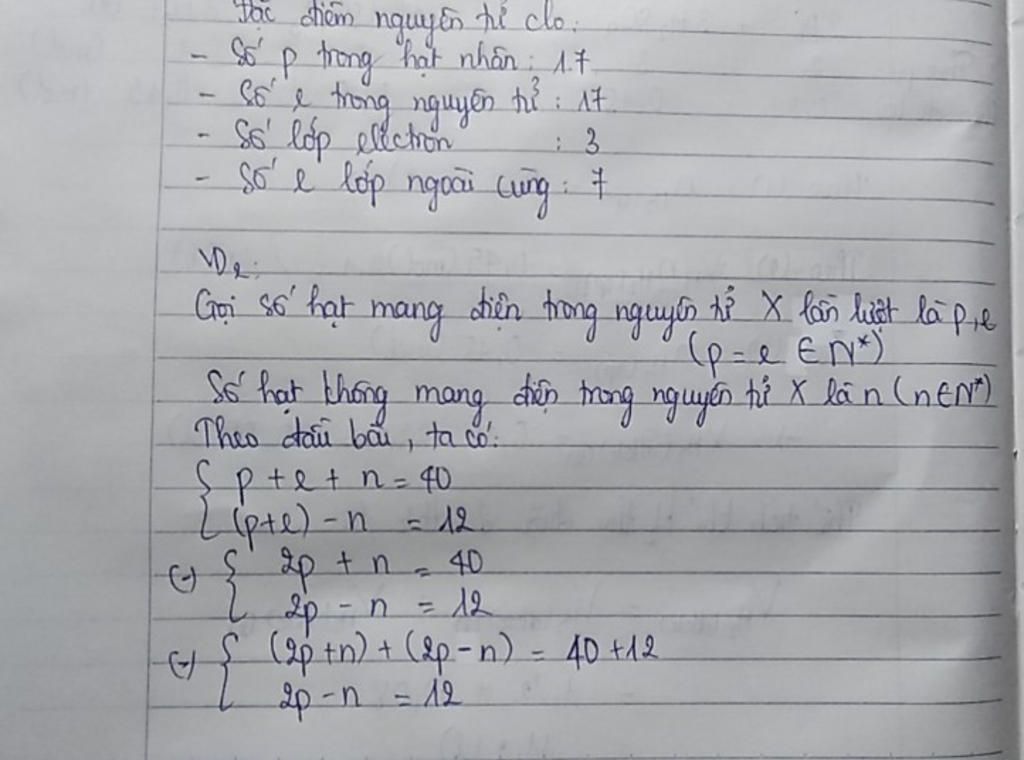 Đặc điểm nguyên tử clo:
- Số p trong hạt nhân: 17
- Số e trong nguyên tử: 17
- Số lớp electron : 3
- Số e lớp ngoài cùng: 7
VD2:
Gọi số hạt mang điện trong nguyên tử X lần lượt là p, e
(p = e ∈ N*)
Số hạt không mang điện trong nguyên tử X là n (n∈N*)
Theo đầu bài, ta có:
{ p + e + n = 40
(p+e) - n = 12
(-) { 2p + n = 40
2p - n = 12
(-) { (2p+n) + (2p-n) = 40+12
2p-n = 12